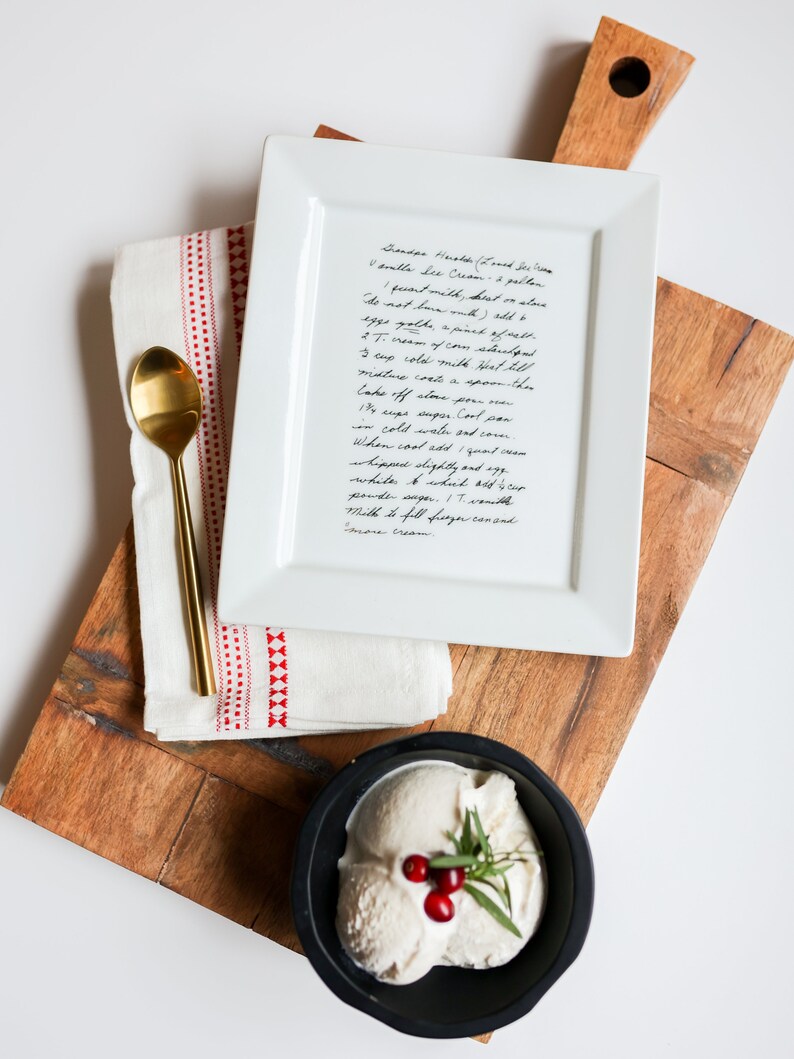 Grandpa Harolds (Loved Ice Cream
Vanilla Ice Cream - 2 gallon
1 quart milk, heat on stove
(do not burn milk) add 6
eggs yolks, a pinch of salt-
2 T. cream of corn starch and
½ cup cold milk Heat till
mixture coats a spoon - then
take off stove pour over
1¾ cups sugar. Cool pan
in cold water and cover.
When cool add 1 quart cream
whipped slightly and egg
whites to which add ¼ cup
powder sugar. 1 T. vanilla
Milk to fill freezer can and
more cream.